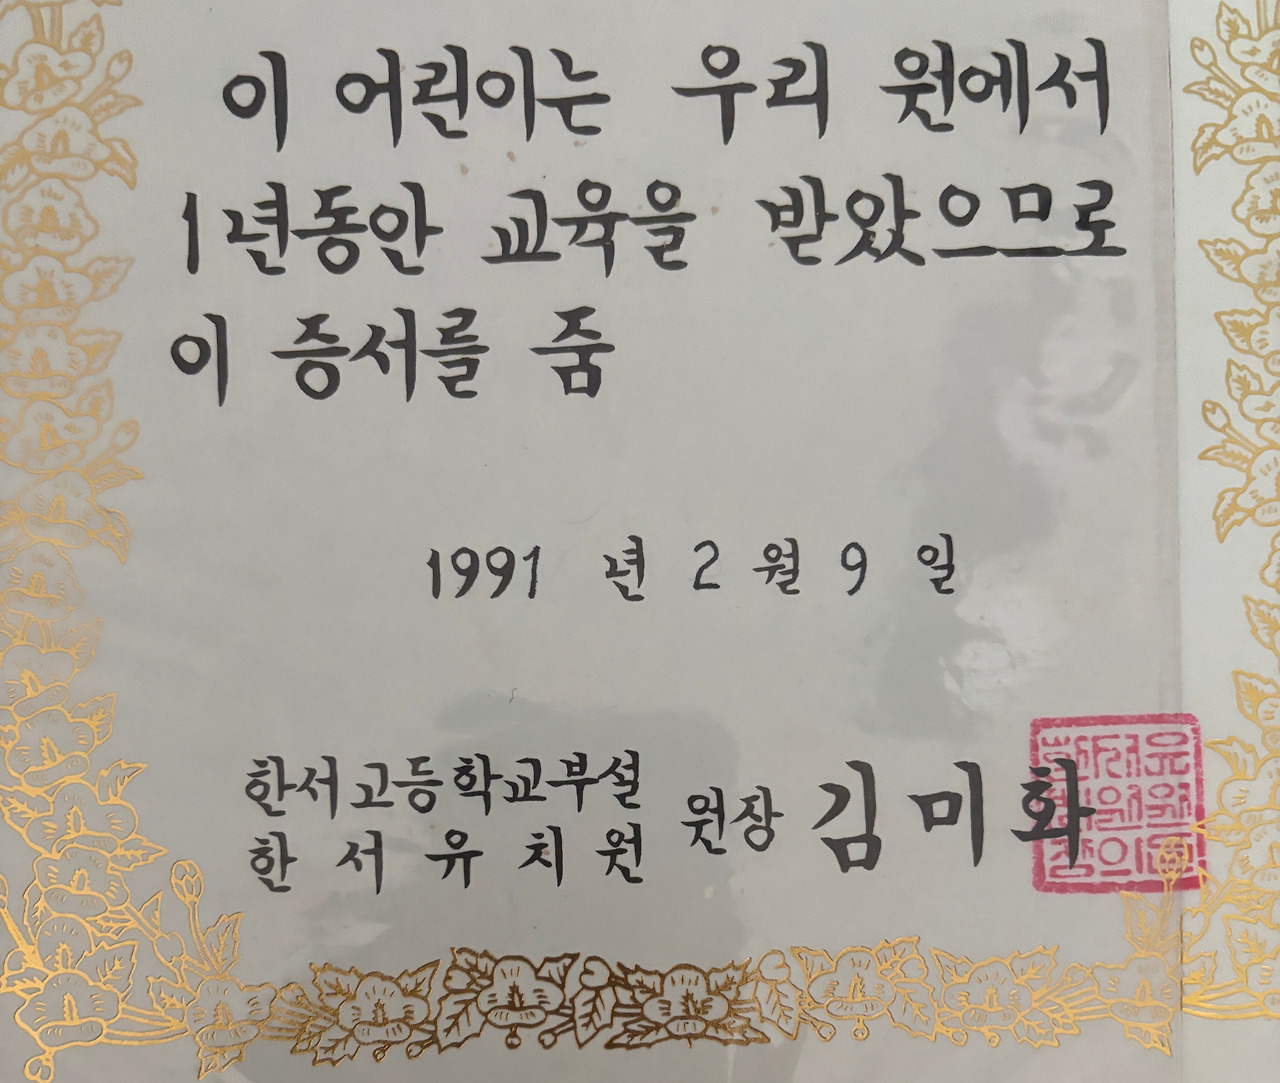 이 어린이는 우리 원에서
1년동안 교육을 받았으므로
이 증서를 줌
1991 년 2 월 9 일
한서고등학교부설
한서유치원 원장 김미화